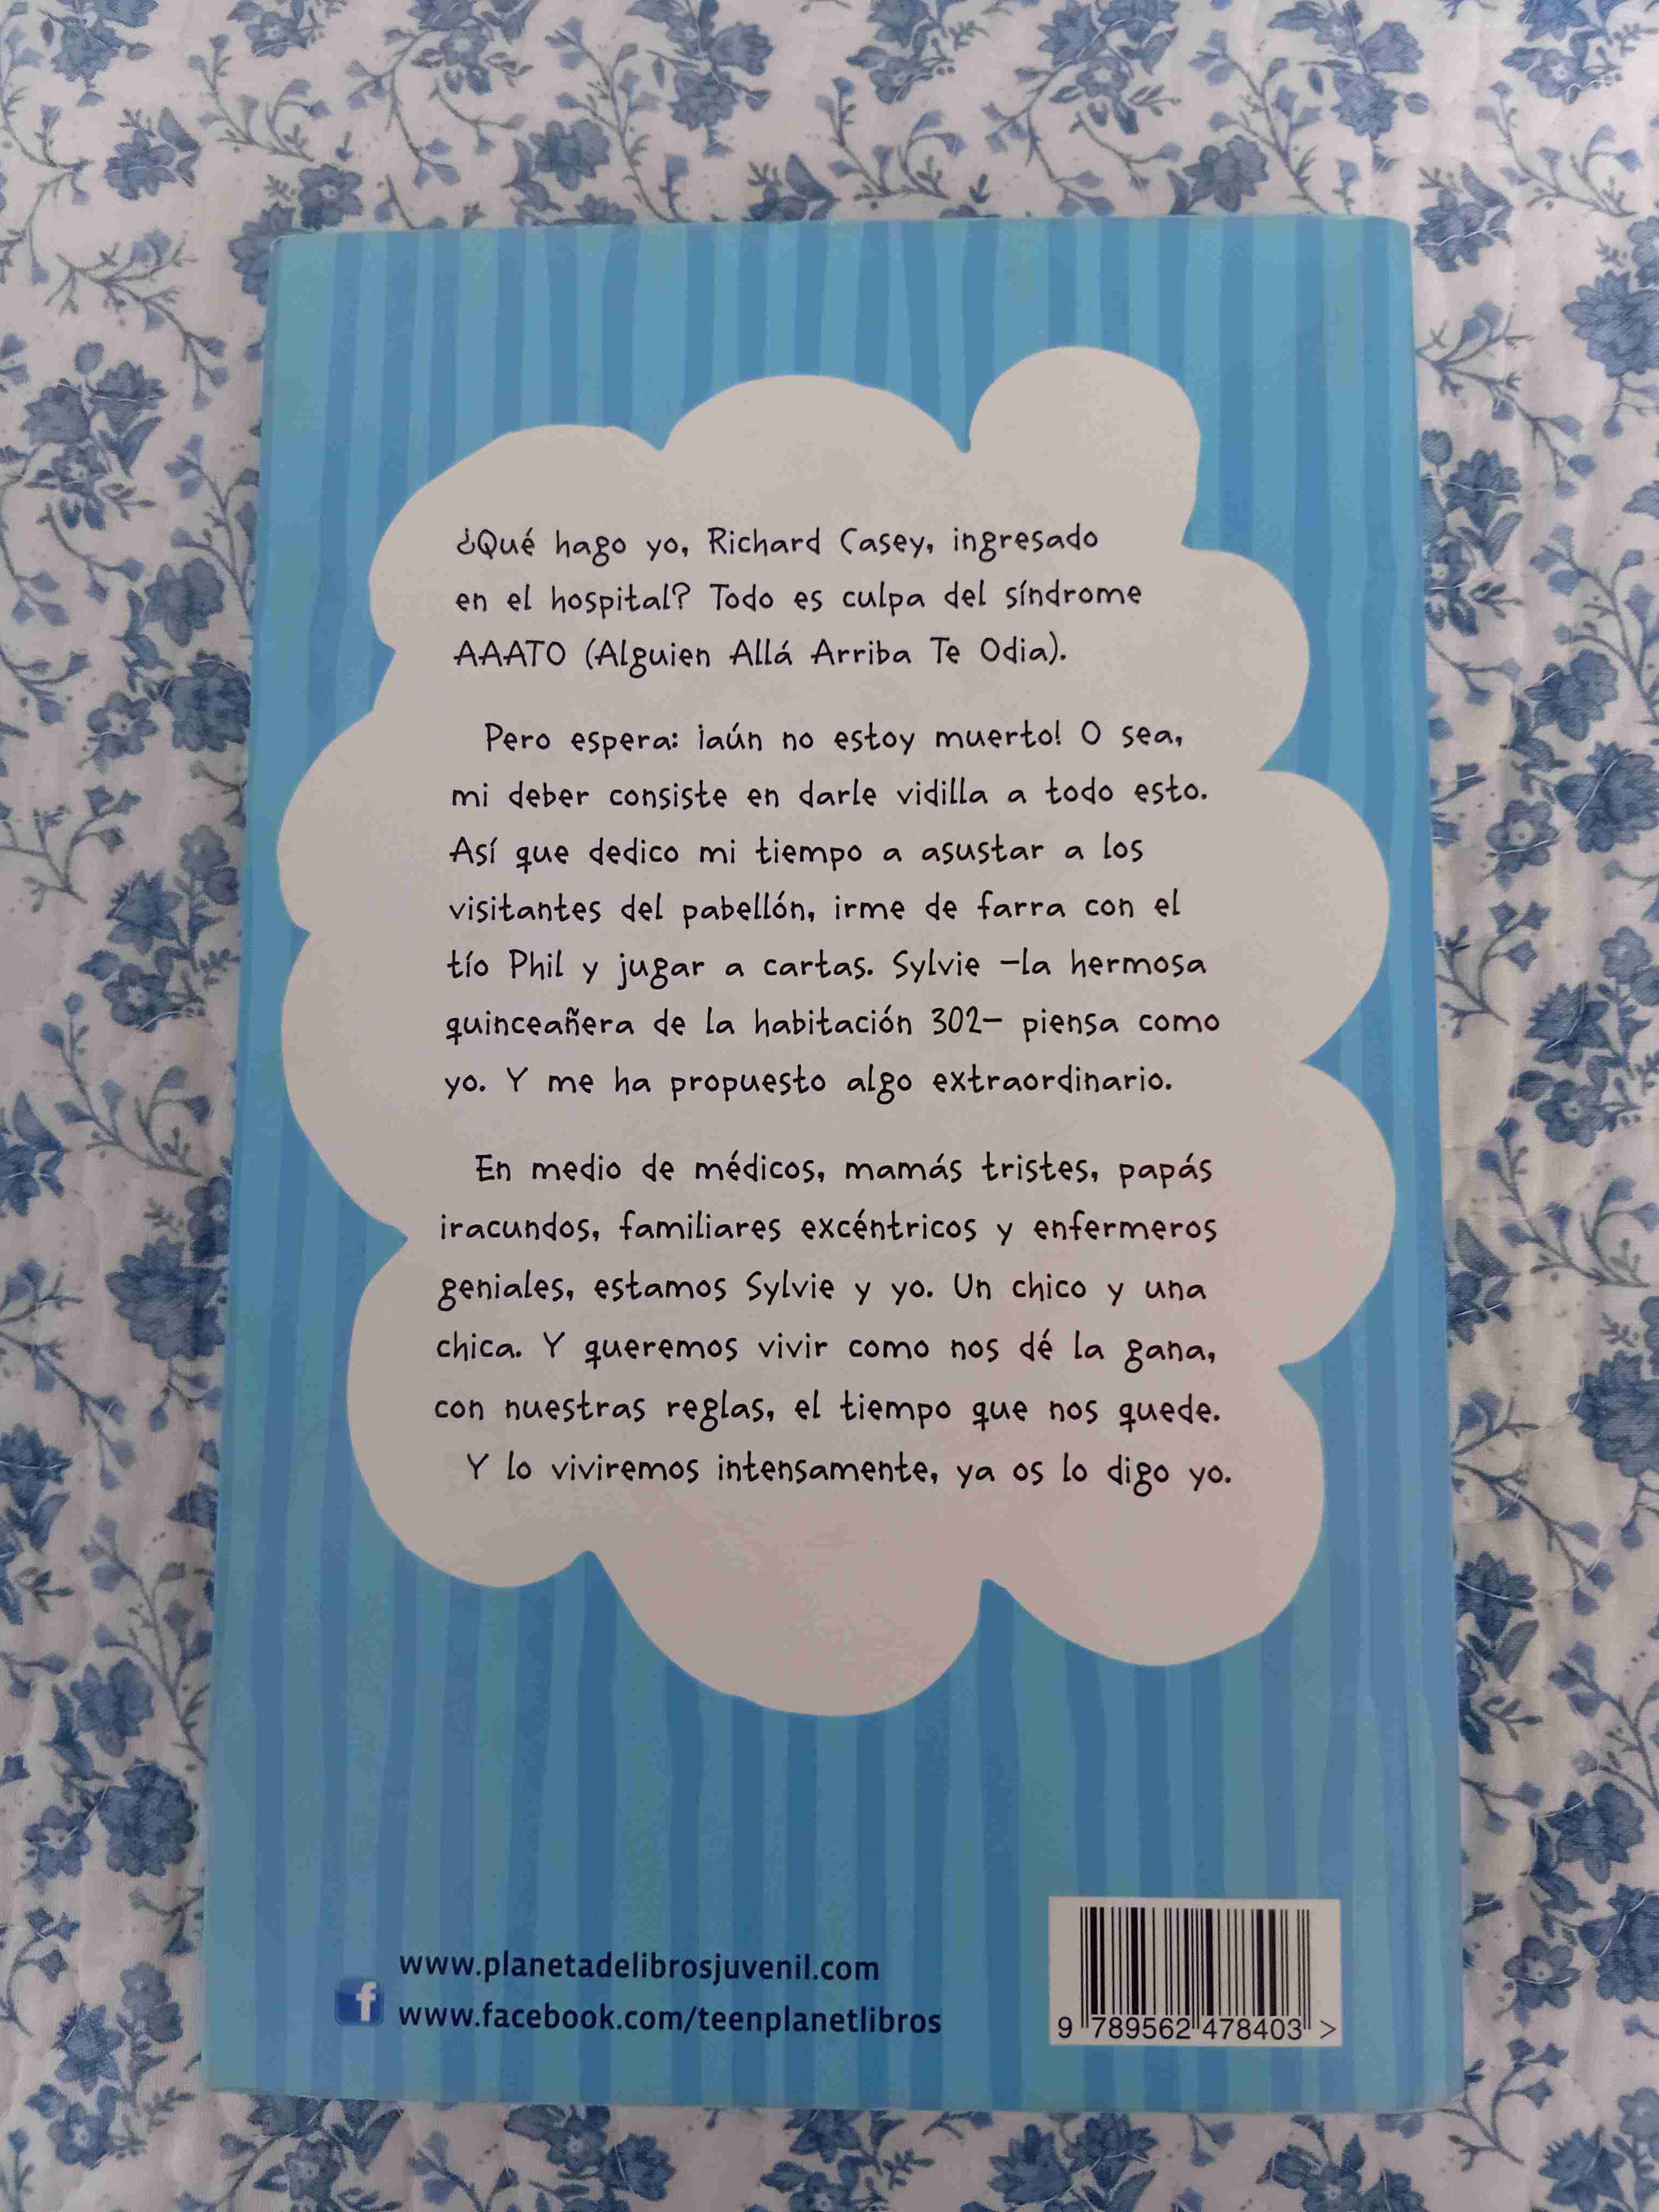 ¿Qué hago yo, Richard Casey, ingresado
en el hospital? Todo es culpa del síndrome
AAATO (Alguien Allá Arriba Te Odia).
Pero espera: ¡aún no estoy muerto! O sea,
mi deber consiste en darle vidilla a todo esto.
Así que dedico mi tiempo a asustar a los
visitantes del pabellón, irme de farra con el
tío Phil y jugar a cartas. Sylvie —la hermosa
quinceañera de la habitación 302— piensa como
yo. Y me ha propuesto algo extraordinario.
En medio de médicos, mamás tristes, papás
iracundos, familiares excéntricos y enfermeros
geniales, estamos Sylvie y yo. Un chico y una
chica. Y queremos vivir como nos dé la gana,
con nuestras reglas, el tiempo que nos quede.
Y lo viviremos intensamente, ya os lo digo yo.
www.planetadelibrosjuvenil.com
f www.facebook.com/teenplanetlibros
9 789562 478403 >